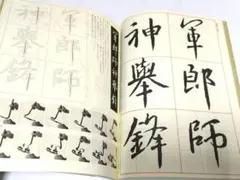 軍郎師
神舉鋒
軍郎師神舉鋒
神舉鋒